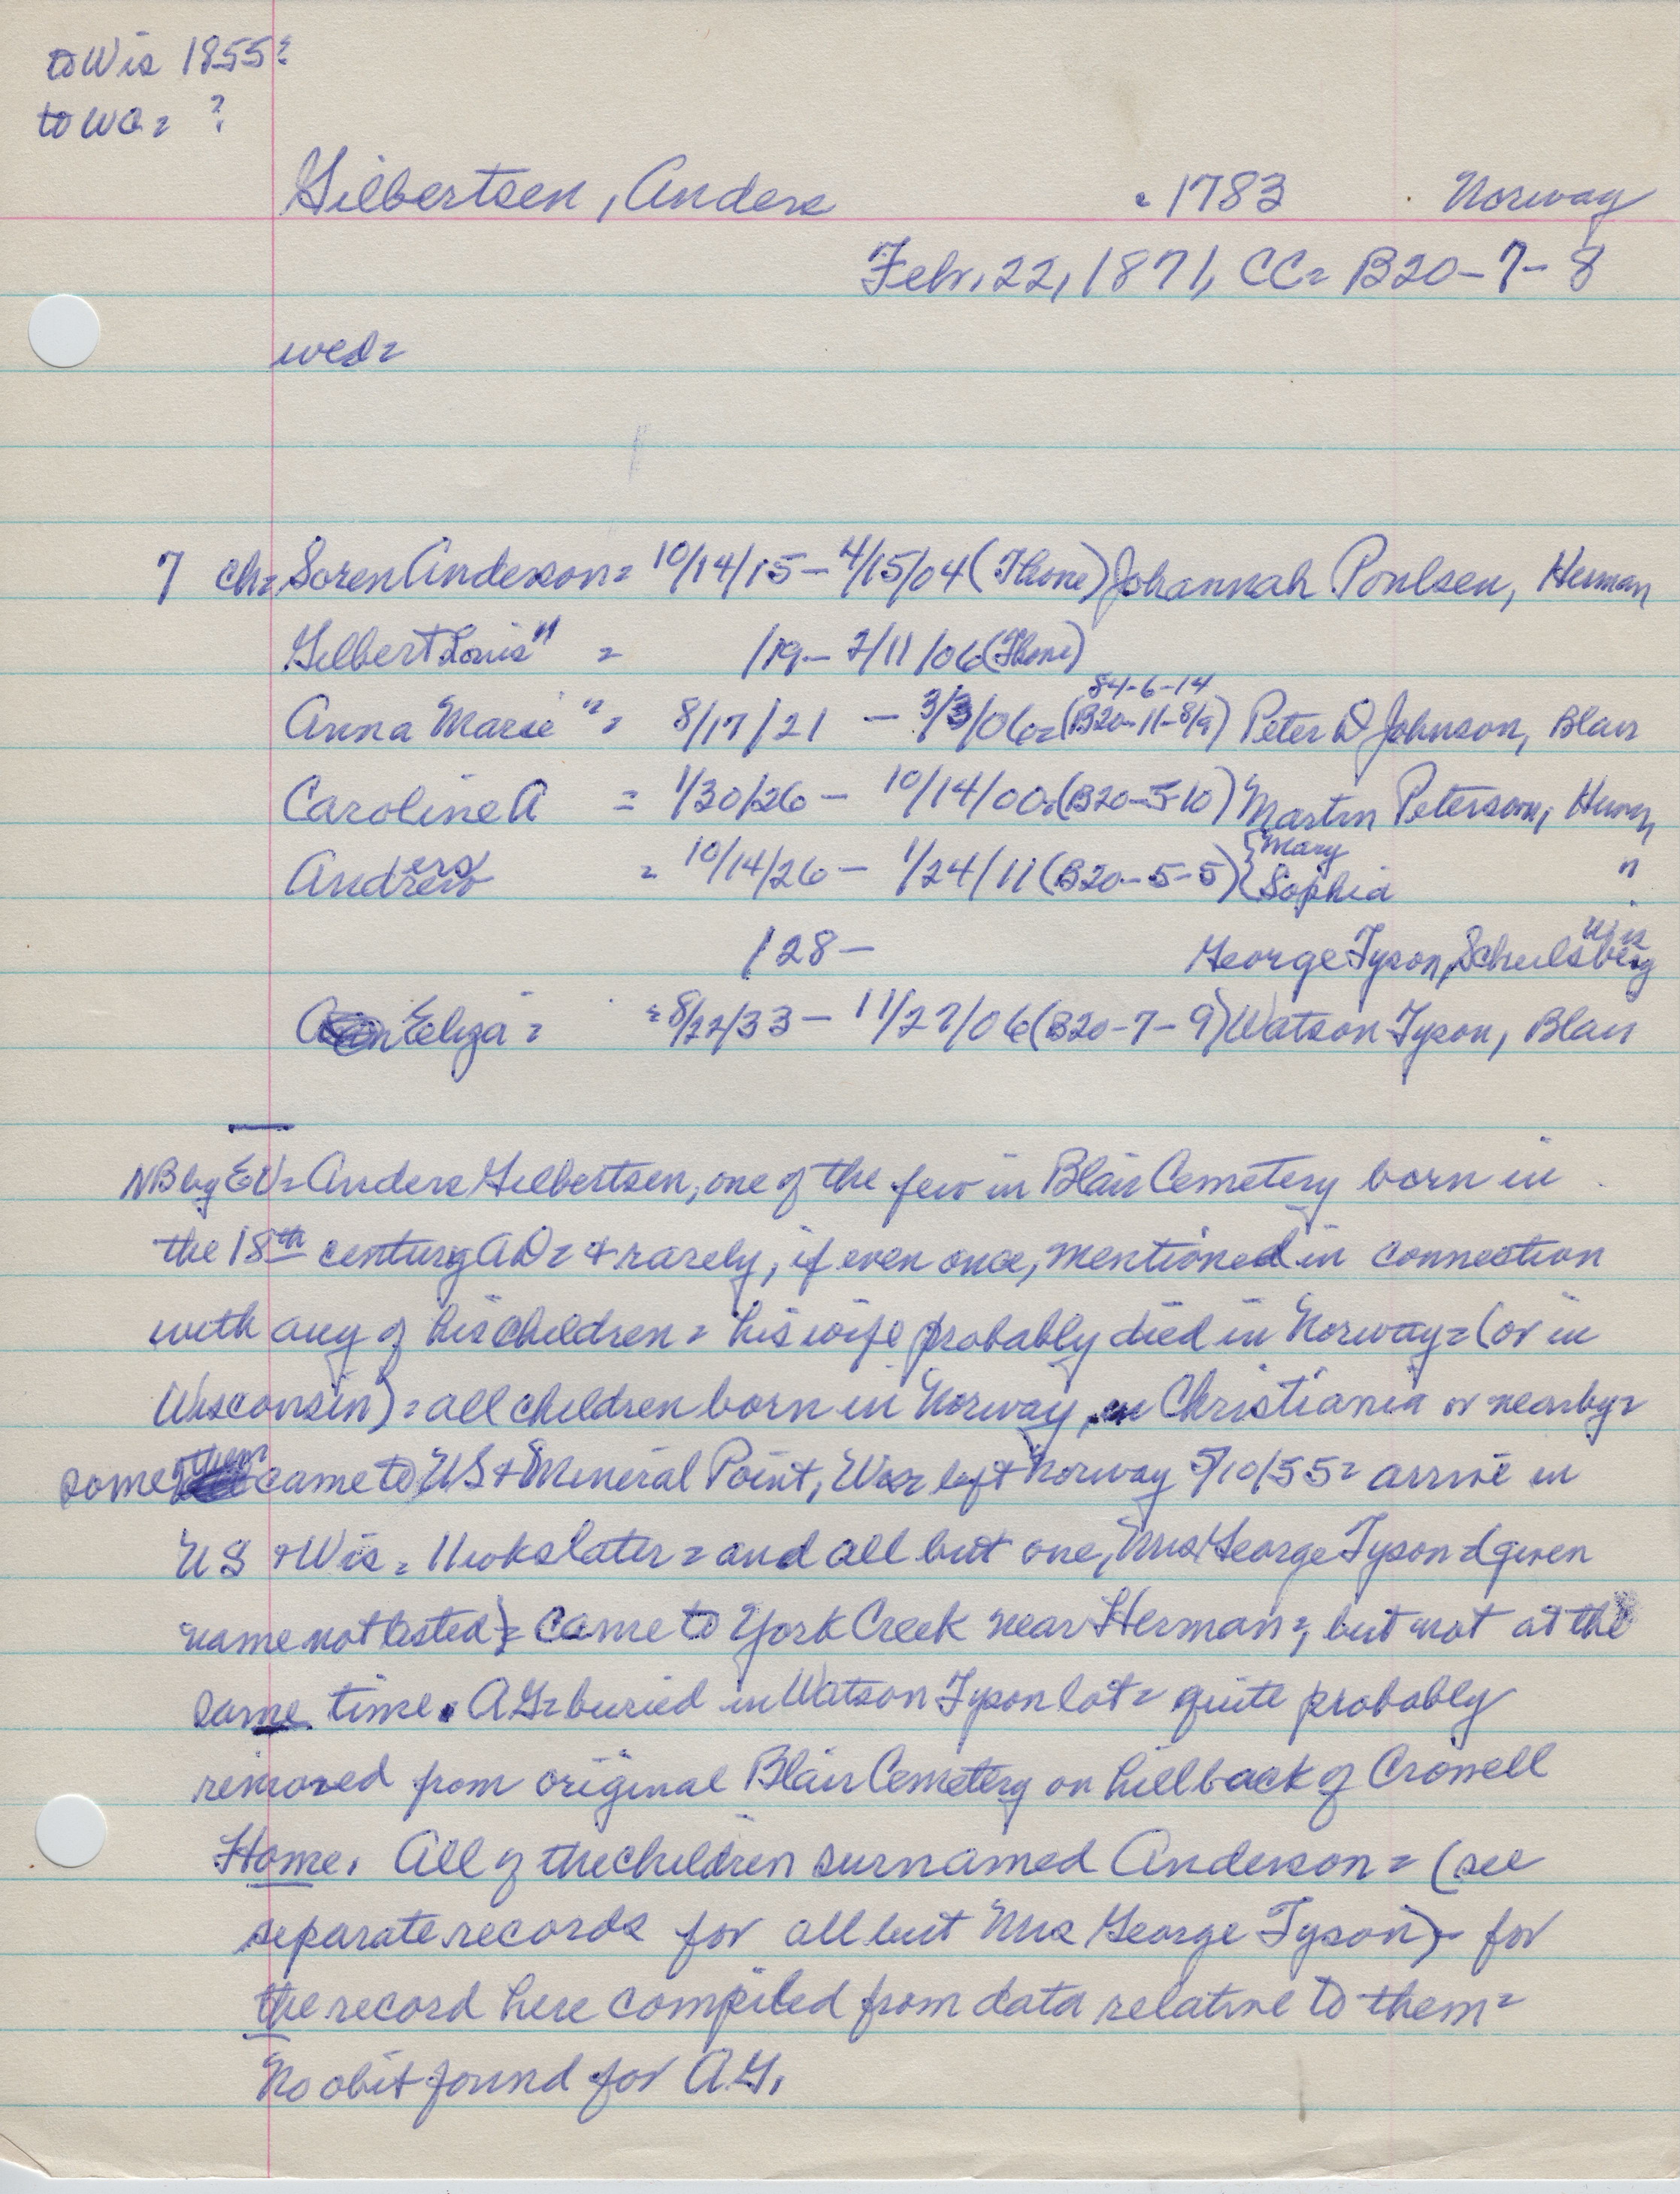 to Wis 1855?
to WC = ?
Gilbertsen, Anders c1783 Norway
Febr. 22, 1871, CC= B20-7-8
wed=
7 ch= Soren Anderson= 10/14/15 - 4/15/04 (Thone) Johannah Poulsen, Herman
Gilbert Louis " = /19 - 2/11/06 (Thone)
84-6-14
Anna Marie " = 8/17/21 - 3/3/06= (B20-11-8/9) Peter D Johnson, Blair
Caroline A = 1/30/26 - 10/14/00= (B20-5-10) Martin Peterson, Herman
Anders = 10/14/26 - 1/24/11 (B20-5-5) {Mary Sophia "
/28 - George Tyson, Schulsberg Wis
Eliza = = 8/22/33 - 11/27/06 (B20-7-9) Watson Tyson, Blair
NB by EU= Anders Gilbertsen, one of the few in Blair Cemetery born in
the 18th century AD= & rarely, if even once, mentioned in connection
with any of his children = his wife probably died in Norway= (or in
Wisconsin) = all children born in Norway, in Christiania or nearby=
some of them came to US & Mineral Point, Wis= left Norway 5/10/55= arrive in
US & Wis= 11 wks later = and all but one, Mrs George Tyson (given
name not listed) = came to York Creek near Herman=, but not at the
same time. AG= buried in Watson Tyson lot= quite probably
removed from original Blair Cemetery on hill back of Crowell
Home. All of the children surnamed Anderson = (see
separate records for all but Mrs George Tyson) - for
the record here compiled from data relative to them=
No obit found for A.G.